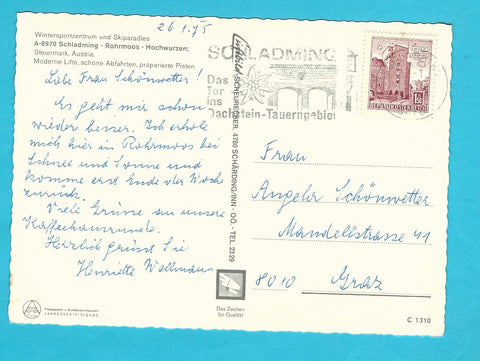 26 1.75
Wintersportzentrum und Skiparadies
A-8970 Schladming - Rohrmoos - Hochwurzen;
Steiermark, Austria.
Moderne Lifte, schöne Abfahrten, präparierte Pisten
Liebe Frau Schönwetter!
Es geht mir schon
wieder besser. Ich erhole
mich hier in Rohrmoos bei
Schnee und Sonne und
komme erst Ende der Woche
zurück.
Viele Grüsse an unsere
Kaffeehausrunde.
Herzlich grüsst Sie
Henriette Wallmann
SCHLADMING
Das
Tor
ins
Dachstein-Tauerngebiet
REPUBLIK ÖSTERREICH
4780 SCHÄRDING/INN - OÖ. - TEL. 2329
Frau
Angela Schönwetter
Mandellstrasse 41
8010 Graz
Das Zeichen
für Qualität
C 1310